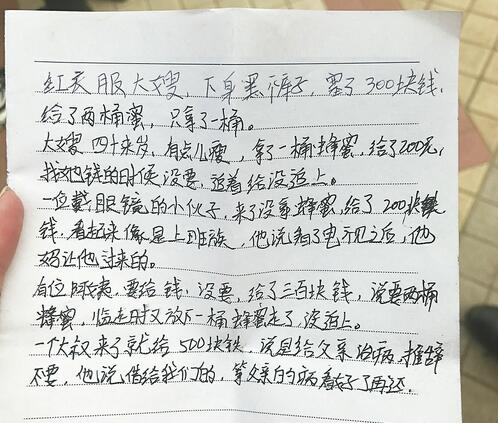 红衣服大嫂，下身黑裤子，留了300块钱，
给了两桶蜜，只拿了一桶。
大嫂四十来岁，有点儿瘦，拿了一桶蜂蜜，给了200元，
找她钱的时侯没要，追着给没追上。
一位戴眼镜的小伙子，来了没拿蜂蜜，给了200块
钱，看起来像是上班族，他说看了电视之后，他
妈让他过来的。
有位阿姨，要给钱，没要，给了三百块钱，说要两桶
蜂蜜，临走时又放下一桶蜂蜜走了，没追上。
一个大叔来了就给500块钱，说是给父亲治病，推辞
不要，他说借给我们的，等父亲的病看好了再还.